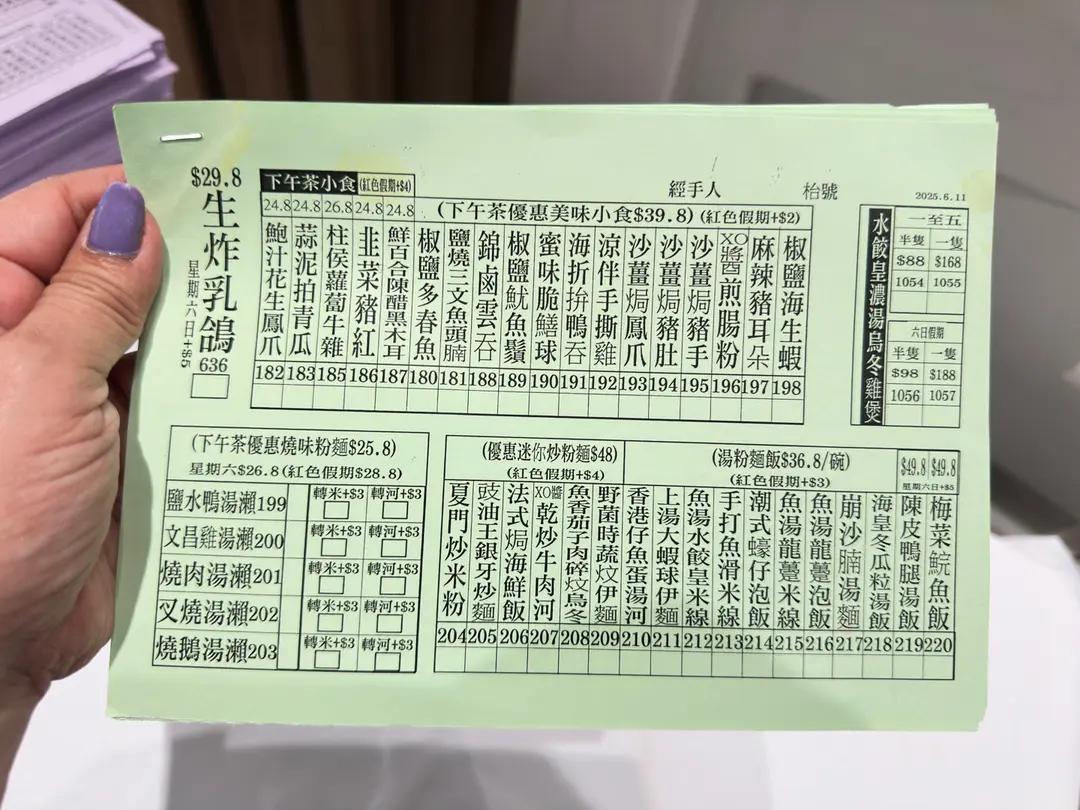 $29.8
生炸乳鴿
星期六日+$5
636
下午茶小食(紅色假期+$4)
經手人
枱號
2025.6.11
24.8 24.8 26.8 24.8 24.8
(下午茶優惠美味小食$39.8) (紅色假期+$2)
鮑汁花生鳳爪 182
蒜泥拍青瓜 183
柱侯蘿蔔牛雜 185
韭菜豬紅 186
鮮百合陳醋黑木耳 187
椒鹽多春魚 180
鹽燒三文魚頭腩 181
錦鹵雲吞 188
椒鹽魷魚鬚 189
蜜味脆鱔球 190
海折拚鴨吞 191
涼伴手撕雞 192
沙薑焗鳳爪 193
沙薑焗豬肚 194
沙薑焗豬手 195
XO醬煎腸粉 196
麻辣豬耳朵 197
椒鹽海生蝦 198
水餃皇濃湯烏冬雞煲
一至五
半隻 一隻
$88 $168
1054 1055
六日假期
半隻 一隻
$98 $188
1056 1057
(下午茶優惠燒味粉麵$25.8)
星期六$26.8(紅色假期$28.8)
鹽水鴨湯瀨199 轉米+$3 轉河+$3
文昌雞湯瀨200 轉米+$3 轉河+$3
燒肉湯瀨201 轉米+$3 轉河+$3
叉燒湯瀨202 轉米+$3 轉河+$3
燒鵝湯瀨203 轉米+$3 轉河+$3
(優惠迷你炒粉麵$48)
(紅色假期+$4)
(湯粉麵飯$36.8/碗)
(紅色假期+$3)
$49.8 $49.8
星期六日+$5
夏門炒米粉 204
豉油王銀牙炒麵 205
法式焗海鮮飯 206
XO醬乾炒牛肉河 207
魚香茄子肉碎炆烏冬 208
野菌時蔬炆伊麵 209
香港仔魚蛋湯河 210
上湯大蝦球伊麵 211
魚湯水餃皇米線 212
手打魚滑米線 213
潮式蠔仔泡飯 214
魚湯龍躉米線 215
魚湯龍躉泡飯 216
崩沙腩湯麵 217
海皇冬瓜粒湯飯 218
陳皮鴨腿湯飯 219
梅菜鯇魚飯 220